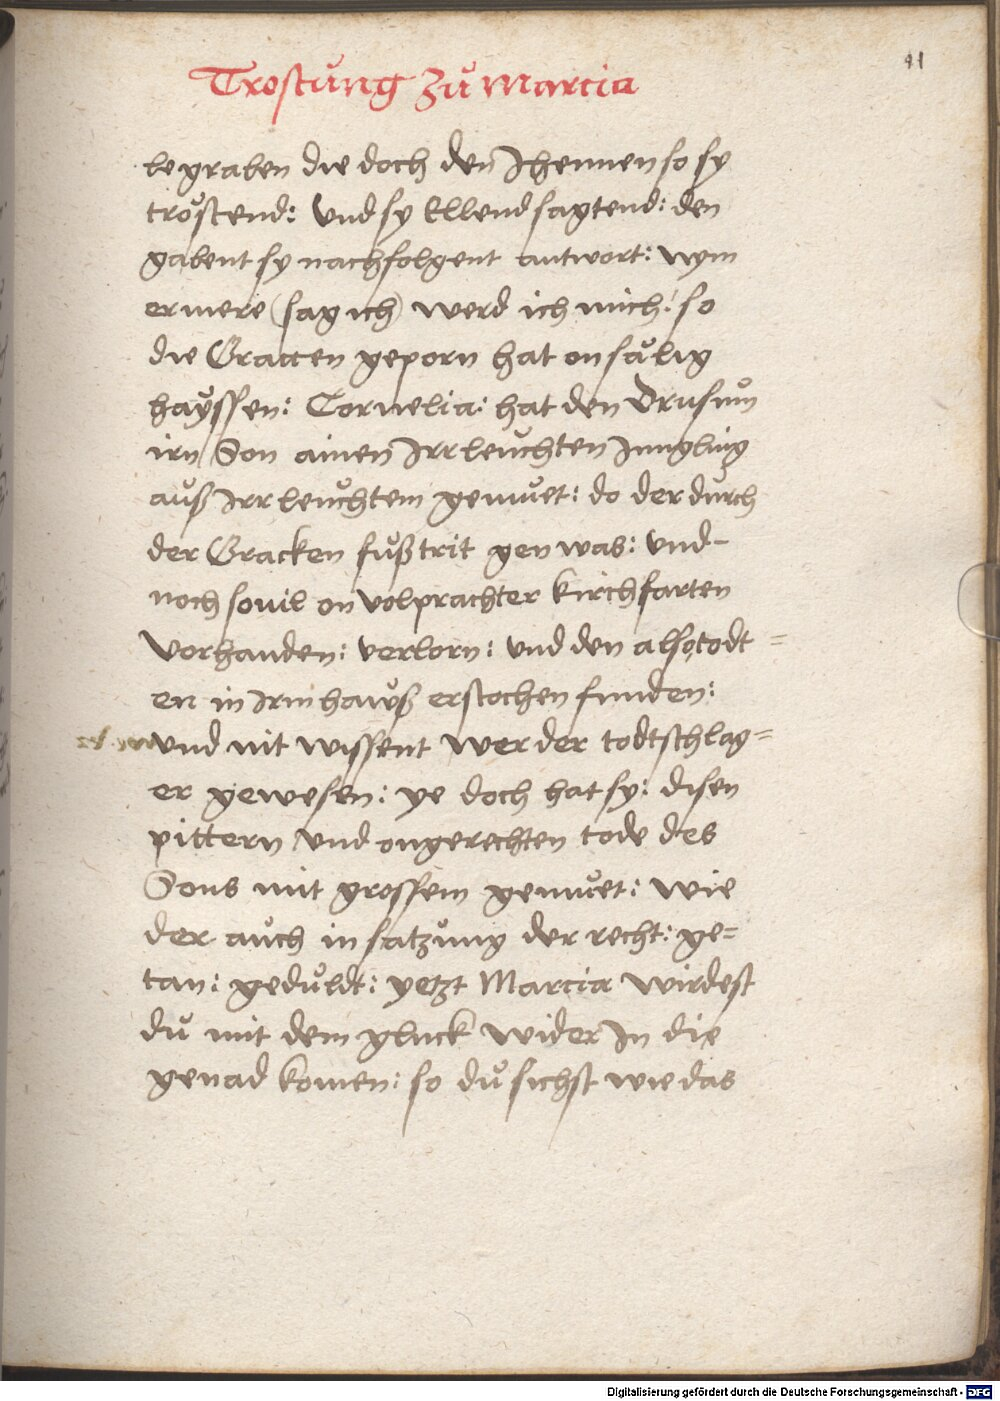 41
Trostung zu Marcia
begraben die doch den Jhennen so sy
tröstend: Vnd sy Ellend sagtend: den
gabent sy nachfolgent antwort: nym
ermere (sag ich) werd ich mich: so
die Graccen geporn hat onsälig
hayssen: Cornelia: hat den Drusum
irn Son ainen Irrleuchten Jungling
auß Irrleuchtem gemuet: do der durch
der Gracken fußtrit gen was: vnd-
noch souil on volprachter kirchfarten
vorhanden: verlorn: vnd den also todt=
en in Irm hawß erstochen funden:
vnd nit wissent wer der todtschlag=
er gewesen: ye doch hat sy: disen
pittern vnd ongerechten tode des
Sons mit grossem gemuet: wie
der auch in satzung der recht: ge=
tan: geduldt: yetzt Marcia wirdest
du mit dem gluck wider In die
genad komen: so du sichst wie das
Digitalisierung gefördert durch die Deutsche Forschungsgemeinschaft - DFG